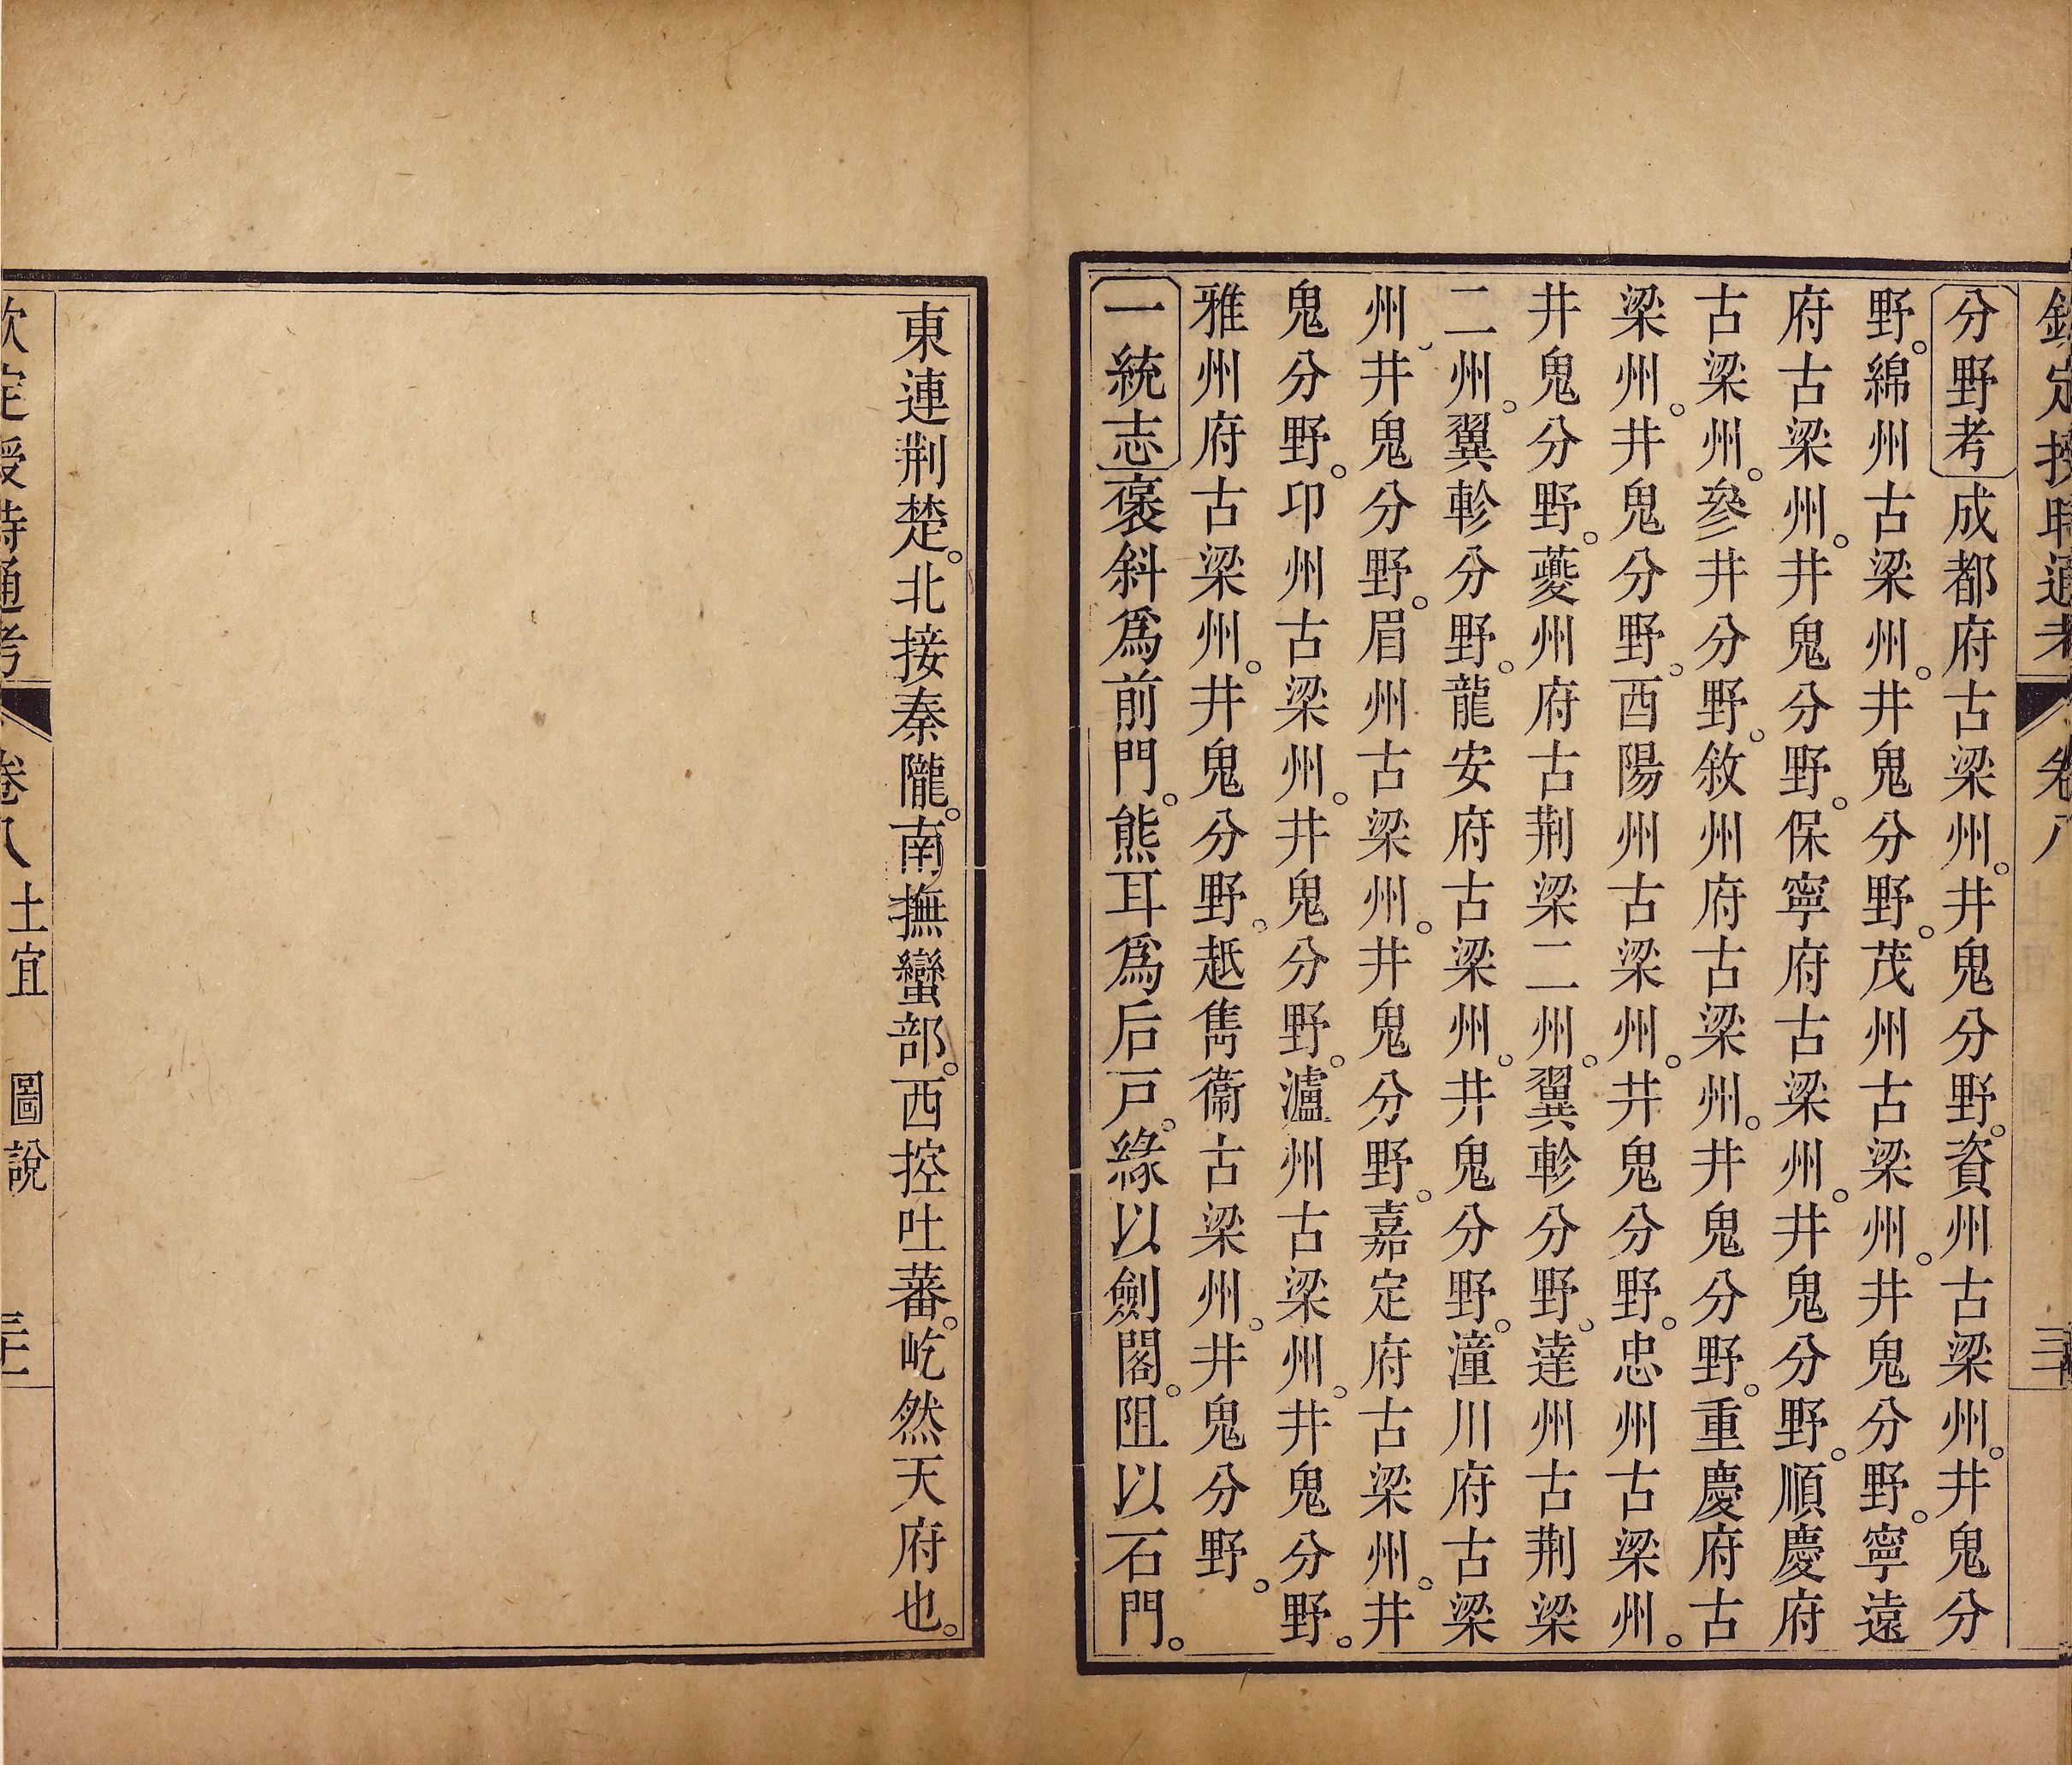 欽定授時通考 卷八 三十
分野考成都府古梁州。井鬼分野。資州古梁州。井鬼分
野。綿州古梁州。井鬼分野。茂州古梁州。井鬼分野。寧遠
府古梁州。井鬼分野。保寧府古梁州。井鬼分野。順慶府
古梁州。參井分野。敘州府古梁州。井鬼分野。重慶府古
梁州。井鬼分野。酉陽州古梁州。井鬼分野。忠州古梁州。
井鬼分野。夔州府古荆梁二州。翼軫分野。達州古荆梁
二州。翼軫分野。龍安府古梁州。井鬼分野。潼川府古梁
州。井鬼分野。眉州古梁州。井鬼分野。嘉定府古梁州。井
鬼分野。卭州古梁州。井鬼分野。瀘州古梁州。井鬼分野。
雅州府古梁州。井鬼分野。越雋衞古梁州。井鬼分野。
一統志褒斜爲前門。熊耳爲后戸。緣以劍閣。阻以石門。
東連荆楚。北接秦隴。南撫蠻部。西控吐蕃。屹然天府也。
欽定授時通考 卷八 土宜 圖說 三十一